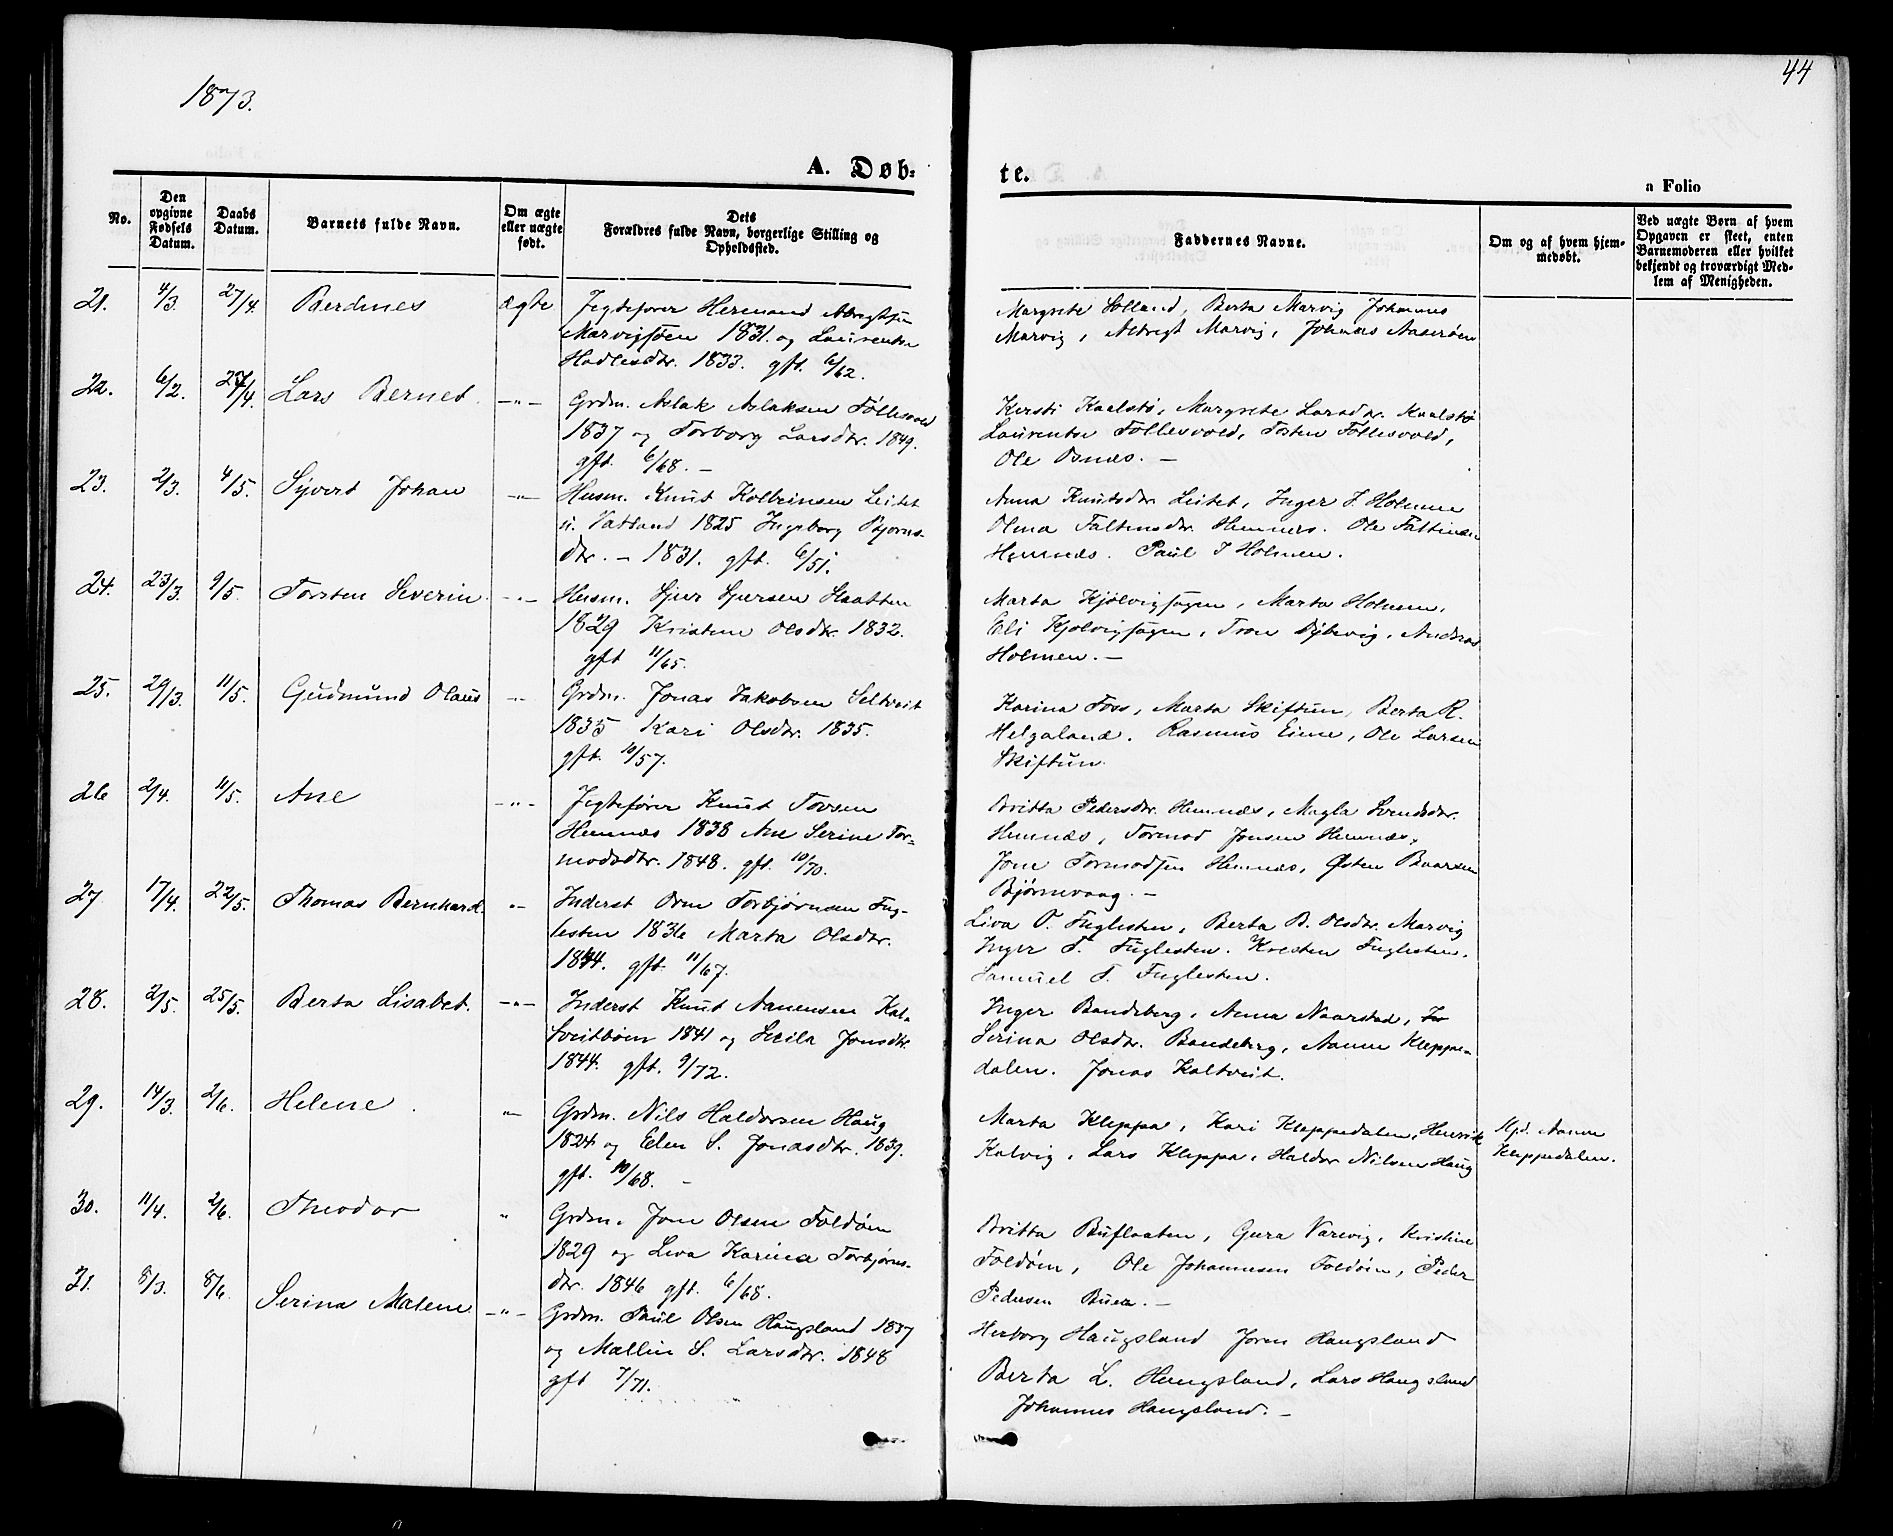 1873.
44
A. Døb-
te.
a Folio
No.
Den opgivne Fødsels Datum.
Daabs Datum.
Barnets fulde Navn.
Om ægte eller uægte født.
Dets Forældres fulde Navn, borgerlige Stilling og Opholdssted.
Faddernes Navne.
Om og af hvem hjemmedøbt.
Ved uægte Børn af hvem Opgaven er skeet, enten Barnemoderen eller hvilket bekjendt og troværdigt Medlem af Menigheden.
21. 4/3. 27/4. Berdines ægte Jegtefører Hermand Albregtsen
Marvigsøen 1831. og Laurentse
Hadlesdtr. 1833. gft. 6/62.
Margrete Lolland, Berta Marvig Johannes
Marvig, Albregt Marvig, Johannes Aaserøen
22. 6/2. 27/4. Lars Bernet. —"— Grdm. Aslak Aslaksen Follesvold
1837 og Torborg Larsdtr. 1849.
gft. 6/68. —
Kersti Kaalstø, Margrete Larsdtr. Kaalstø
Laurentse Follesvold, Tosten Follesvold,
Ole Osnæs. —
23. 2/3. 4/5. Syvert Johan —"— Husm. Knut Kolbeinsen Leitet
u. Vatland 1825 Ingeborg Bjørns-
dtr. — 1831. gft. 6/51.
Anna Knutsdtr. Leitet, Inger J. Holmen
Olena Faltinsdtr. Hemnes. Ole Faltinsen
Hemnæs. Paul J Holmen.
24. 23/3. 9/5. Torsten Severin. —"— Husm. Sjur Sjursen Slaatten
1829 Kristine Olsdtr. 1832.
gft 11/65.
Marta Kjølvigsagen, Marta Holmen,
Eli Kjølvigsagen, Tron Dybvig, Andreas
Holmen. —
25. 29/3. 11/5. Gudmund Olaus —"— Grdm. Jonas Jakobsen Seltveit
1835 Kari Olsdtr. 1835.
gft. 10/57.
Karina Foss, Marta Skiftun, Berta R.
Helgaland. Rasmus Eime, Ole Larsen
Skiftun.
26 2/4. 11/5. Ane —"— Jegtefører Knut Torsen
Hemnæs 1838 Ane Serine Tor-
modsdtr. 1848. gft. 10/70.
Britta Pedersdtr. Hemnæs, Magla Svendsdtr.
Hemnæs, Tormod Jonsen Hemnæs,
Jone Tormodsen Hemnæs, Østen Baarsen
Bjørnevaag. —
27 17/4. 22/5. Thomas Bernhard. "— Inderst Orm Torbjørnsen Fug-
lesten 1836 Marta Olsdtr.
1844. gft. 11/67.
Liva O. Fuglesten, Berta B. Olsdtr. Marvig
Inger T. Fuglesten. Kresten Fuglesten.
Samuel T. Fuglesten.
28. 2/5. 25/5. Berta Lisabet. —"— Inderst Knut Aanensen Kal-
tveitbøen 1841 og Sicila Jonsdtr.
1844. gft. 9/72.
Inger Bandeberg, Anna Naarstad,
Serina Olsdtr. Bandeberg, Aanen Kleppe-
dalen. Jonas Kaltveit.
29. 14/3. 2/6. Helene. "— Grdm. Nils Haldorsen Haug
1824 og Elen S. Jonasdtr. 1839.
gft. 10/68. —
Marta Kleppa, Kari Kleppedalen, Henrik
Kalvig, Lars Kleppa, Haldor Nilsen Haug
Hjd. Aanen
Kleppedalen.
30. 11/4. 2/6. Theodor " Grdm. Jone Olsen Foldøen
1829 og Liva Karina Torbjørns-
dtr. 1846 gft. 6/68.
Britta Buflaaten, Gura Varvig, Kristine
Foldøen, Ole Johannesen Foldøen, Peder
Pedersen Buer. —
31. 8/3. 8/6. Serina Malene —"— Grdm. Paul Olsen Haugsland 1837
og Mallin S. Larsdtr. 1848
gft 7/71.
Herborg Haugsland Joren Haugsland
Berta L. Haugsland, Lars Haugsland
Johannes Haugsland. —